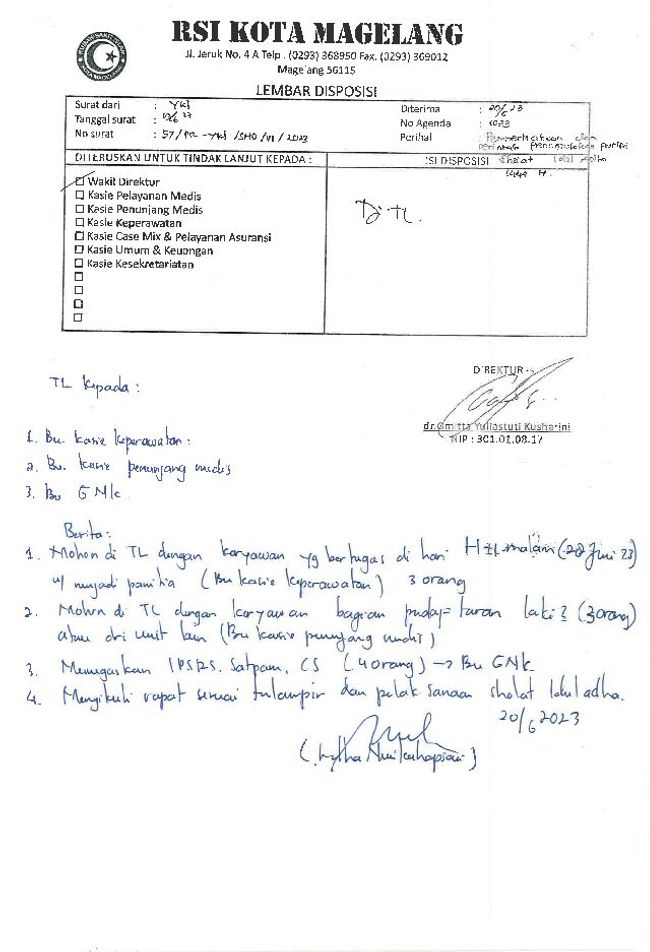 RSI KOTA MAGELANG
Jl. Jeruk No. 4 A Telp . (0293) 368950 Fax. (0293) 369012
Magelang 56115
LEMBAR DISPOSISI
Surat dari : YKI
Tanggal surat :
No surat : 57/ /SHO/VI/2023
Diterima : 20/6 23
No Agenda : 1023
Perihal : dan
Sholat Idul Adha
1444 H.
DITERUSKAN UNTUK TINDAK LANJUT KEPADA :
ISI DISPOSISI
Wakil Direktur
Kasie Pelayanan Medis
Kasie Penunjang Medis
Kasie Keperawatan
Kasie Case Mix & Pelayanan Asuransi
Kasie Umum & Keuangan
Kasie Kesekretariatan
Di TL.
DIREKTUR
dr.Gmitta Yuliastuti Kusharini
NIP : 301.01.08.17
TL Kepada :
1. Bu. Kasie Keperawatan :
2. Bu. Kasie penunjang medis
3. Bu GNK.
Berita :
1. Mohon di TL dengan karyawan yg bertugas di hari H malam (28 Juni 23)
u/ menjadi panitia (Bu Kasie Keperawatan) 3 orang
2. Mohon di TL dengan karyawan bagian laki2 (3 orang)
atau dri unit lain (Bu Kasie penunjang medis)
3. Menugaskan IPSRS, Satpam, CS (4 orang) → Bu GNK
4. Mengikuti rapat sesuai terlampir dan pelaksanaan sholat Idul adha.
20/6 2023